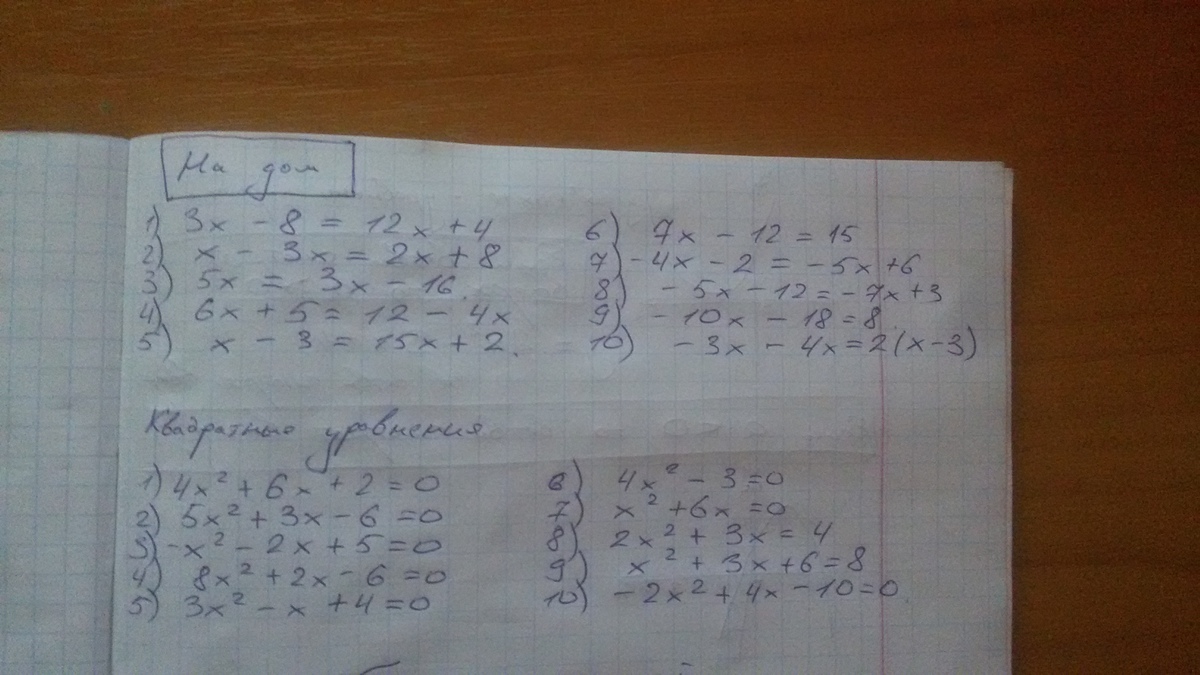 На дом
1) 3x - 8 = 12x + 4
2) x - 3x = 2x + 8
3) 5x = 3x - 16.
4) 6x + 5 = 12 - 4x
5) x - 3 = 15x + 2.
6) 7x - 12 = 15
7) -4x - 2 = -5x + 6
8) -5x - 12 = -7x + 3
9) -10x - 18 = 8.
10) -3x - 4x = 2(x - 3)
Квадратные уравнения
1) 4x² + 6x + 2 = 0
2) 5x² + 3x - 6 = 0
3) -x² - 2x + 5 = 0
4) 8x² + 2x - 6 = 0
5) 3x² - x + 4 = 0
6) 4x² - 3 = 0
7) x² + 6x = 0
8) 2x² + 3x = 4
9) x² + 3x + 6 = 8
10) -2x² + 4x - 10 = 0.